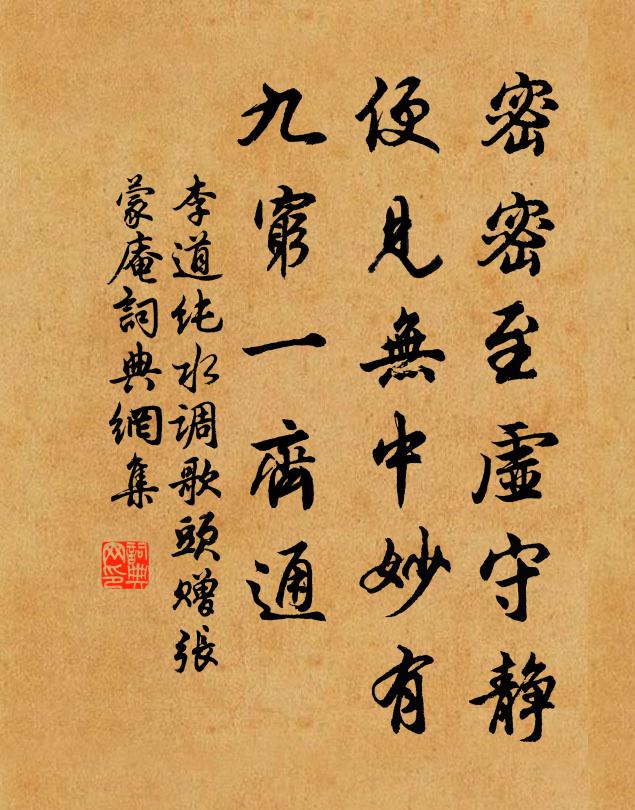 密密至虛守静
便見無中妙有
九窮一齊通
李道纯水调歌頭赠張
蒙庵詞典網集
詞典
网印